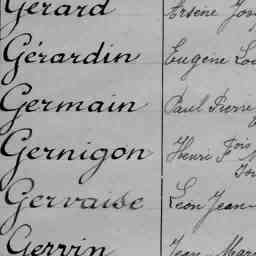 Gérard Arsène Jos
Gérardin Eugène Lou
Germain Paul Pierre
Gernigon Henri Fois
Gervaise Léon Jean
Gervin Jean Mar